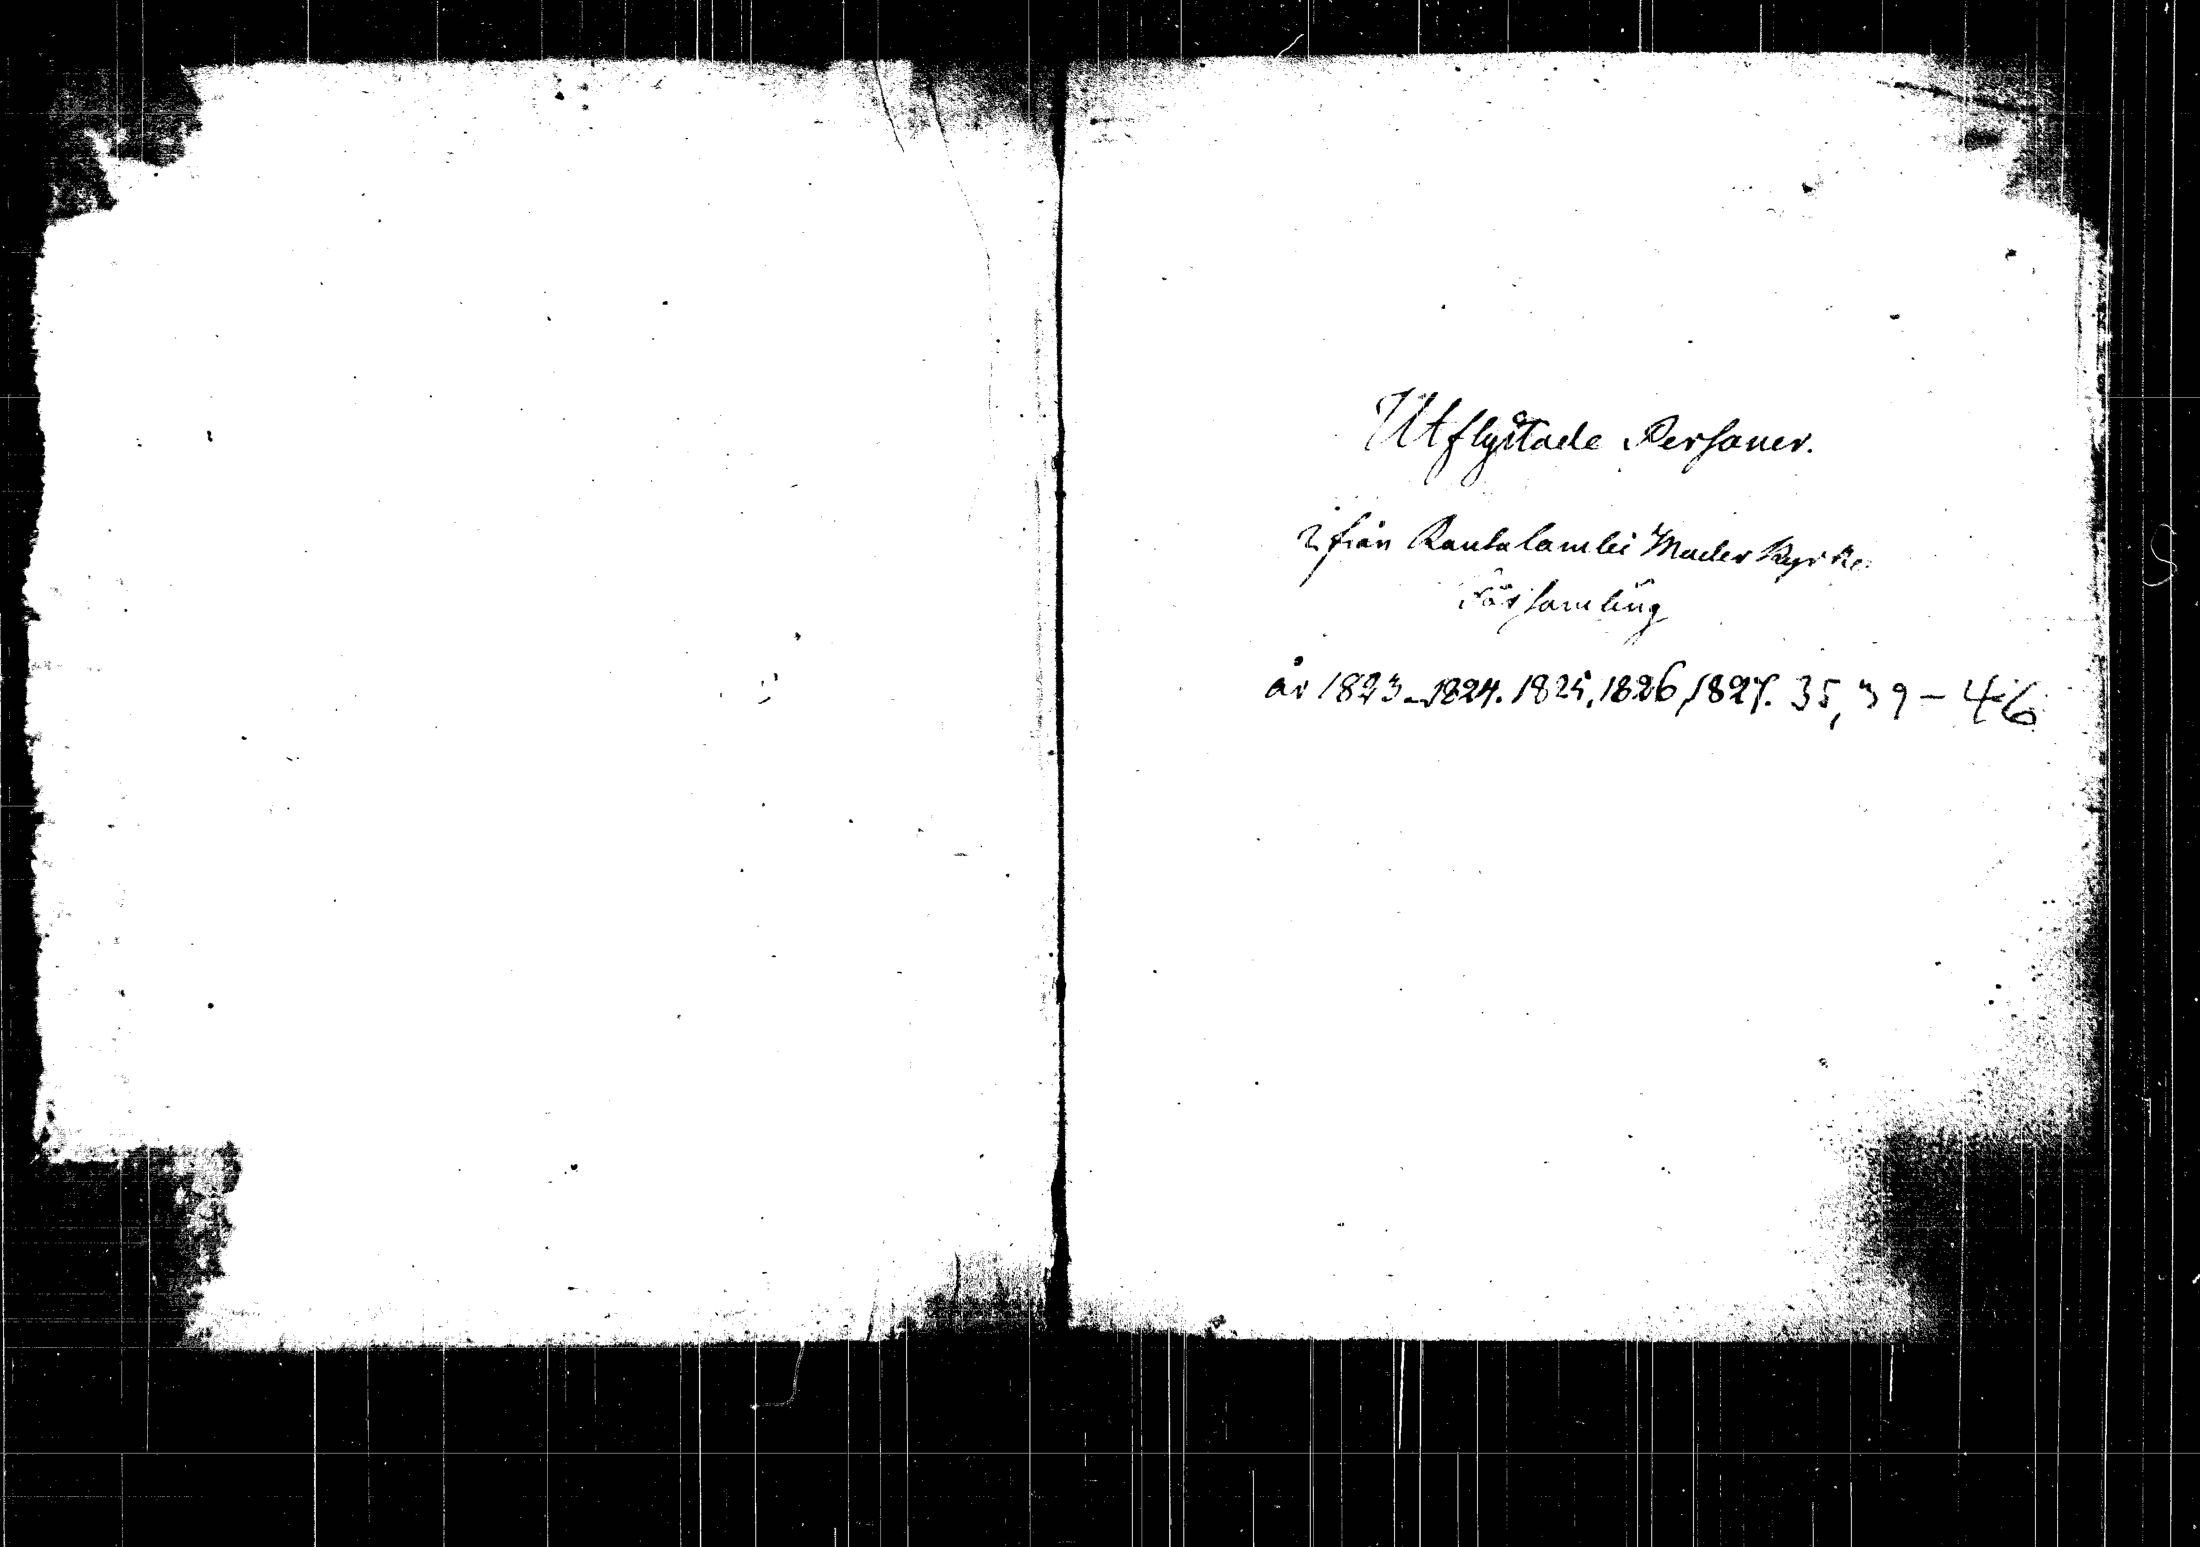 Utflyttade Personer.
ifrån Rautalambi Moder Kyrko
Församling
år 1823-1824. 1825, 1826, 1827. 35, 39 - 46